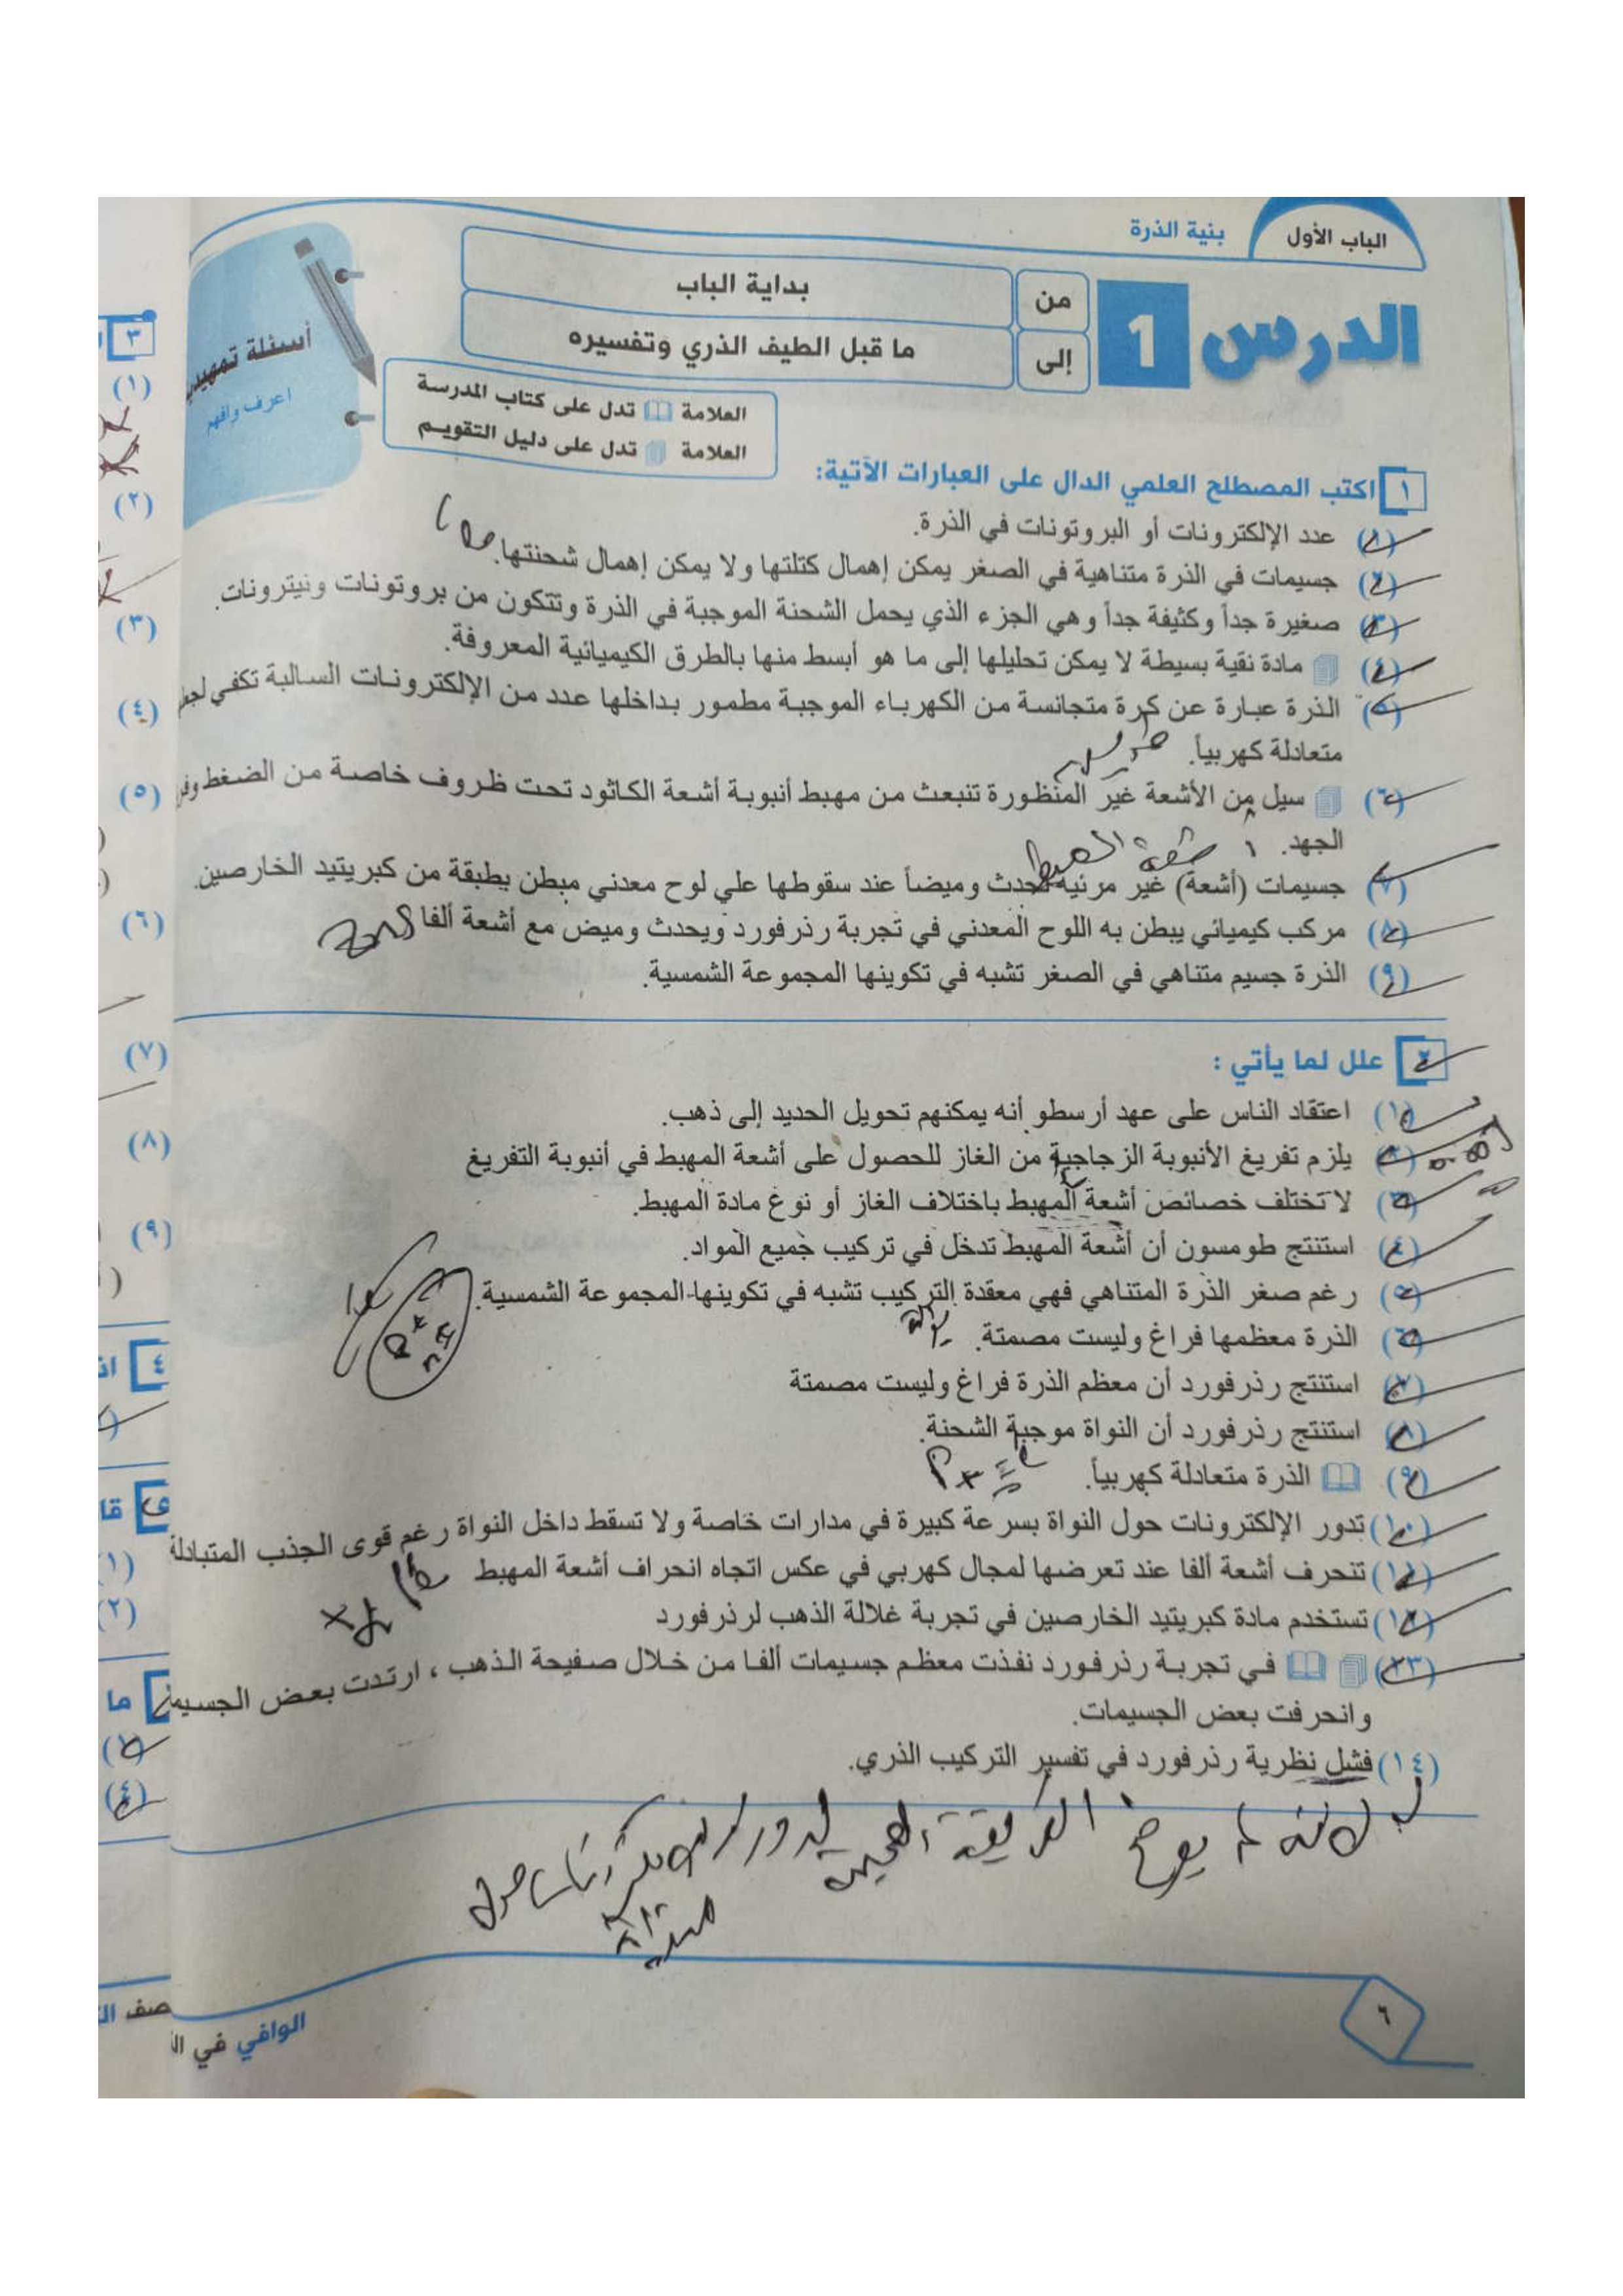 الباب الأول
بنية الذرة
الدرس 1
من
بداية الباب
إلى
ما قبل الطيف الذري وتفسيره
أسئلة تمهيدية
اعرف وافهم
العلامة تدل على كتاب المدرسة
العلامة تدل على دليل التقويم
١ اكتب المصطلح العلمي الدال على العبارات الآتية:
(١) عدد الإلكترونات أو البروتونات في الذرة.
(٢) جسيمات في الذرة متناهية في الصغر يمكن إهمال كتلتها ولا يمكن إهمال شحنتها.
(٣) صغيرة جداً وكثيفة جداً وهي الجزء الذي يحمل الشحنة الموجبة في الذرة وتتكون من بروتونات ونيترونات.
(٤) مادة نقية بسيطة لا يمكن تحليلها إلى ما هو أبسط منها بالطرق الكيميائية المعروفة.
(٥) الذرة عبارة عن كرة متجانسة من الكهرباء الموجبة مطمور بداخلها عدد من الإلكترونات السالبة تكفي لجعل
متعادلة كهربياً.
(٦) سيل من الأشعة غير المنظورة تنبعث من مهبط أنبوبة أشعة الكاثود تحت ظروف خاصة من الضغط وفر
الجهد. اشعة المهبط
(٧) جسيمات (أشعة) غير مرئية تحدث وميضاً عند سقوطها علي لوح معدني مبطن بطبقة من كبريتيد الخارصين.
(٨) مركب كيميائي يبطن به اللوح المعدني في تجربة رذرفورد ويحدث وميض مع أشعة ألفا ZnS
(٩) الذرة جسيم متناهي في الصغر تشبه في تكوينها المجموعة الشمسية.
٢ علل لما يأتي :
(١) اعتقاد الناس على عهد أرسطو أنه يمكنهم تحويل الحديد إلى ذهب.
(٢) يلزم تفريغ الأنبوبة الزجاجية من الغاز للحصول على أشعة المهبط في أنبوبة التفريغ
(٣) لا تختلف خصائص أشعة المهبط باختلاف الغاز أو نوع مادة المهبط.
(٤) استنتج طومسون أن أشعة المهبط تدخل في تركيب جميع المواد.
(٥) رغم صغر الذرة المتناهي فهي معقدة التركيب تشبه في تكوينها المجموعة الشمسية.
(٦) الذرة معظمها فراغ وليست مصمتة.
(٧) استنتج رذرفورد أن معظم الذرة فراغ وليست مصمتة
(٨) استنتج رذرفورد أن النواة موجبة الشحنة.
(٩) الذرة متعادلة كهربياً.
(١٠) تدور الإلكترونات حول النواة بسرعة كبيرة في مدارات خاصة ولا تسقط داخل النواة رغم قوى الجذب المتبادلة
(١١) تنحرف أشعة ألفا عند تعرضها لمجال كهربي في عكس اتجاه انحراف أشعة المهبط
(١٢) تستخدم مادة كبريتيد الخارصين في تجربة غلالة الذهب لرذرفورد
(١٣) في تجربة رذرفورد نفذت معظم جسيمات ألفا من خلال صفيحة الذهب ، ارتدت بعض الجسيمات
وانحرفت بعض الجسيمات.
(١٤) فشل نظرية رذرفورد في تفسير التركيب الذري.
لانه لم يوضح الطريقة الصحيحة لدوران الالكترونات حول
٦
الوافي في ال
صف ال
٣
(١)
(٢)
(٣)
(٤)
(٥)
(٦)
(٧)
(٨)
(٩)
٤
قا
(١)
(٢)
ما
(٤)